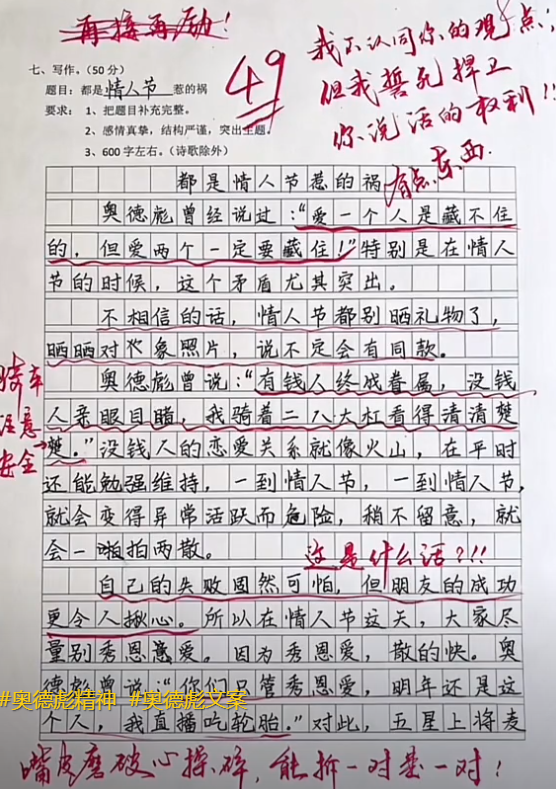 再接再励！
我不认同你的观点，
但我誓死捍卫
你说话的权利!!
有点东西.
49
七、写作。(50分)
题目：都是情人节惹的祸
要求：1、把题目补充完整。
2、感情真挚，结构严谨，突出主题。
3、600字左右。(诗歌除外)
都是情人节惹的祸
奥德彪曾经说过：“爱一个人是藏不住
的，但爱两个一定要藏住！”特别是在情人
节的时候，这个矛盾尤其突出。
不相信的话，情人节都别晒礼物了，
晒晒对象照片，说不定会有同款。
奥德彪曾说：“有钱人终成眷属，没钱
人亲眼目睹，我骑着二八大杠看得清清楚
楚。”没钱人的恋爱关系就像火山，在平时
骑车
注意
安全
还能勉强维持，一到情人节，一到情人节，
就会变得异常活跃而危险，稍不留意，就
会一啪拍两散。
这是什么话?!!
自己的失败固然可怕，但朋友的成功
更令人揪心。所以在情人节这天，大家尽
量别秀恩爱。因为秀恩爱，散的快。奥
德彪曾说：“你们只管秀恩爱，明年还是这
个人，我直播吃轮胎。”对此，五星上将麦
#奥德彪精神 #奥德彪文案
嘴皮磨破心操碎，能拆一对是一对！